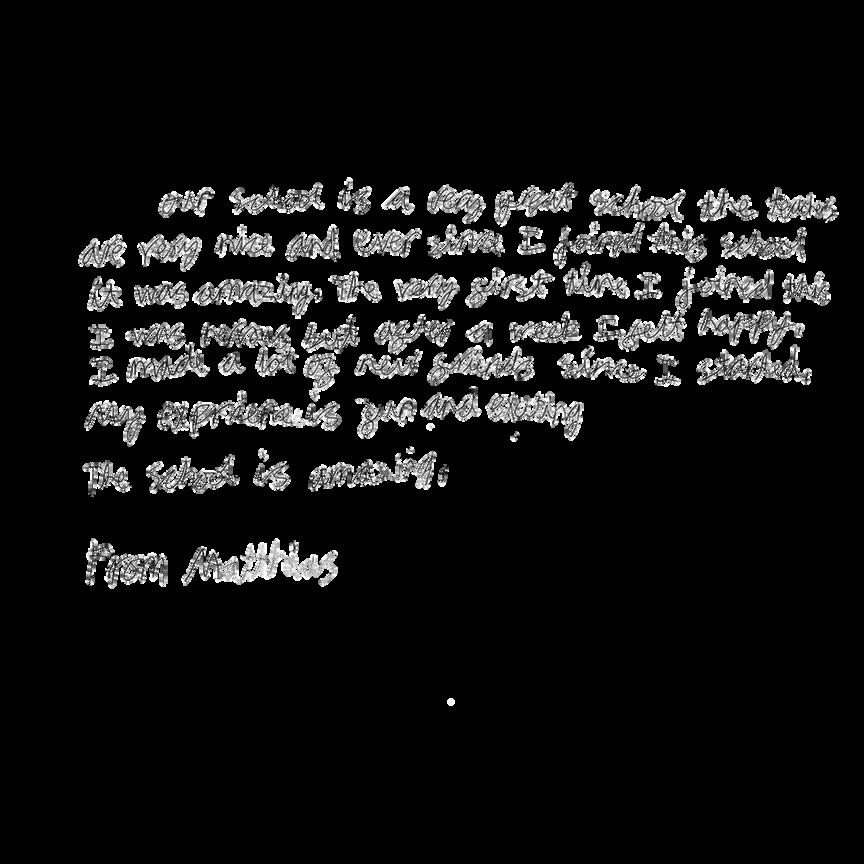 our school is a very great school the
are very nice and ever since I joined this school
it was amazing. The very first time I joined this
I was but after a week I felt happy.
I made a lot of new friends since I started.
my is fun and exciting
The school is amazing.
From Matthias